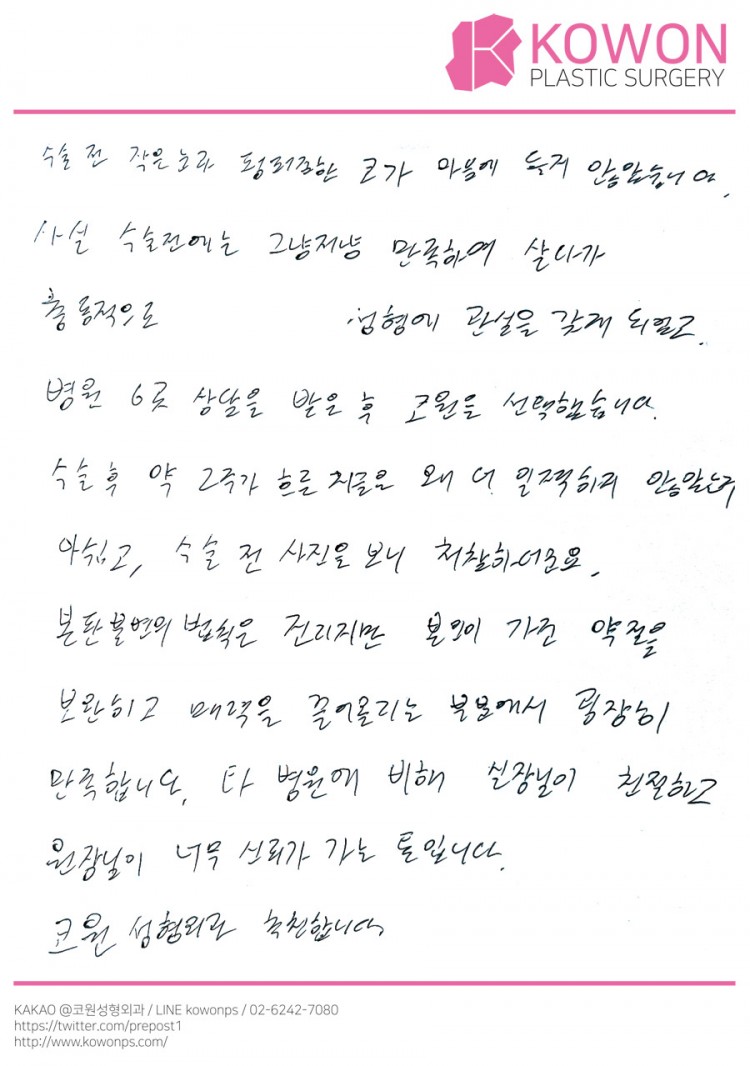 KOWON
PLASTIC SURGERY
수술 전 작은 눈과 펑퍼짐한 코가 마음에 들지 않았습니다.
사실 수술전에는 그냥저냥 만족하여 살다가
충동적으로 성형에 관심을 갖게 되었고.
병원 6곳 상담을 받은 후 코원을 선택했습니다.
수술 후 약 2주가 흐른 지금은 왜 더 일찍하지 않았는지
아쉽고, 수술 전 사진을 보니 처참하더군요.
본판불변의 법칙은 진리지만 본인이 가진 약점을
보완하고 매력을 끌어올리는 부분에서 굉장히
만족합니다. 타 병원에 비해 실장님이 친절하고
원장님이 너무 신뢰가 가는 톤입니다.
코원 성형외과 추천합니다.
KAKAO @코원성형외과 / LINE kowonps / 02-6242-7080
https://twitter.com/prepost1
http://www.kowonps.com/